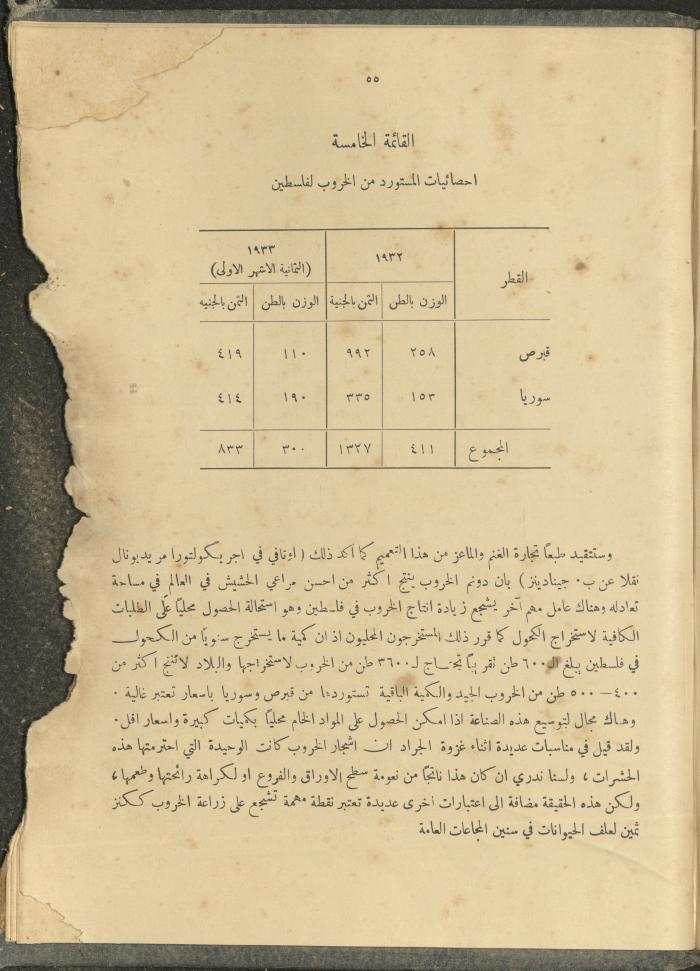 ٥٥
القائمة الخامسة
احصائيات المستورد من الخروب لفلسطين
القطر ١٩٣٢ ١٩٣٣
(الثمانية الاشهر الاولى)
الوزن بالطن الثمن بالجنية الوزن بالطن الثمن بالجنيه
قبرص ٢٥٨ ٩٩٢ ١١٠ ٤١٩
سوريا ١٥٣ ٣٣٥ ١٩٠ ٤١٤
المجموع ٤١١ ١٣٢٧ ٣٠٠ ٨٣٣
وستتقيد طبعاً تجارة الغنم والماعز من هذا التعميم كما اكد ذلك ( اوتافي في اجريكولتورا مريديونال
نقلا عن ب. جينادينز ) بان دونم الخروب ينتج اكثر من احسن مراعي الحشيش في العالم في مساحة
تعادله وهناك عامل مهم آخر يشجع زيادة انتاج الخروب في فلسطين وهو استحالة الحصول محلياً على الطلبات
الكافية لاستخراج الكحول كما قرر ذلك المستخرجون المحليون اذ ان كمية ما يستخرج سنوياً من الكحول
في فلسطين يبلغ الـ٦٠٠ طن تقريباً تحتاج لـ٣٦٠٠ طن من الخروب لاستخراجها والبلاد لا تنتج اكثر من
٤٠٠ – ٥٠٠ طن من الخروب الجيد والكمية الباقية تستوردها من قبرص وسوريا باسعار تعتبر غالية .
وهناك مجال لتوسيع هذه الصناعة اذا امكن الحصول على المواد الخام محلياً بكميات كبيرة واسعار اقل .
ولقد قيل في مناسبات عديدة اثناء غزوة الجراد ان اشجار الخروب كانت الوحيدة التي احترمتها هذه
الحشرات ، ولسنا ندري ان كان هذا ناتجاً من نعومة سطح الاوراق والفروع او لكراهة رائحتها وطعمها ،
ولكن هذه الحقيقة مضافة الى اعتبارات اخرى عديدة تعتبر نقطة مهمة تشجع على زراعة الخروب ككنز
ثمين لعلف الحيوانات في سنين المجاعات العامة